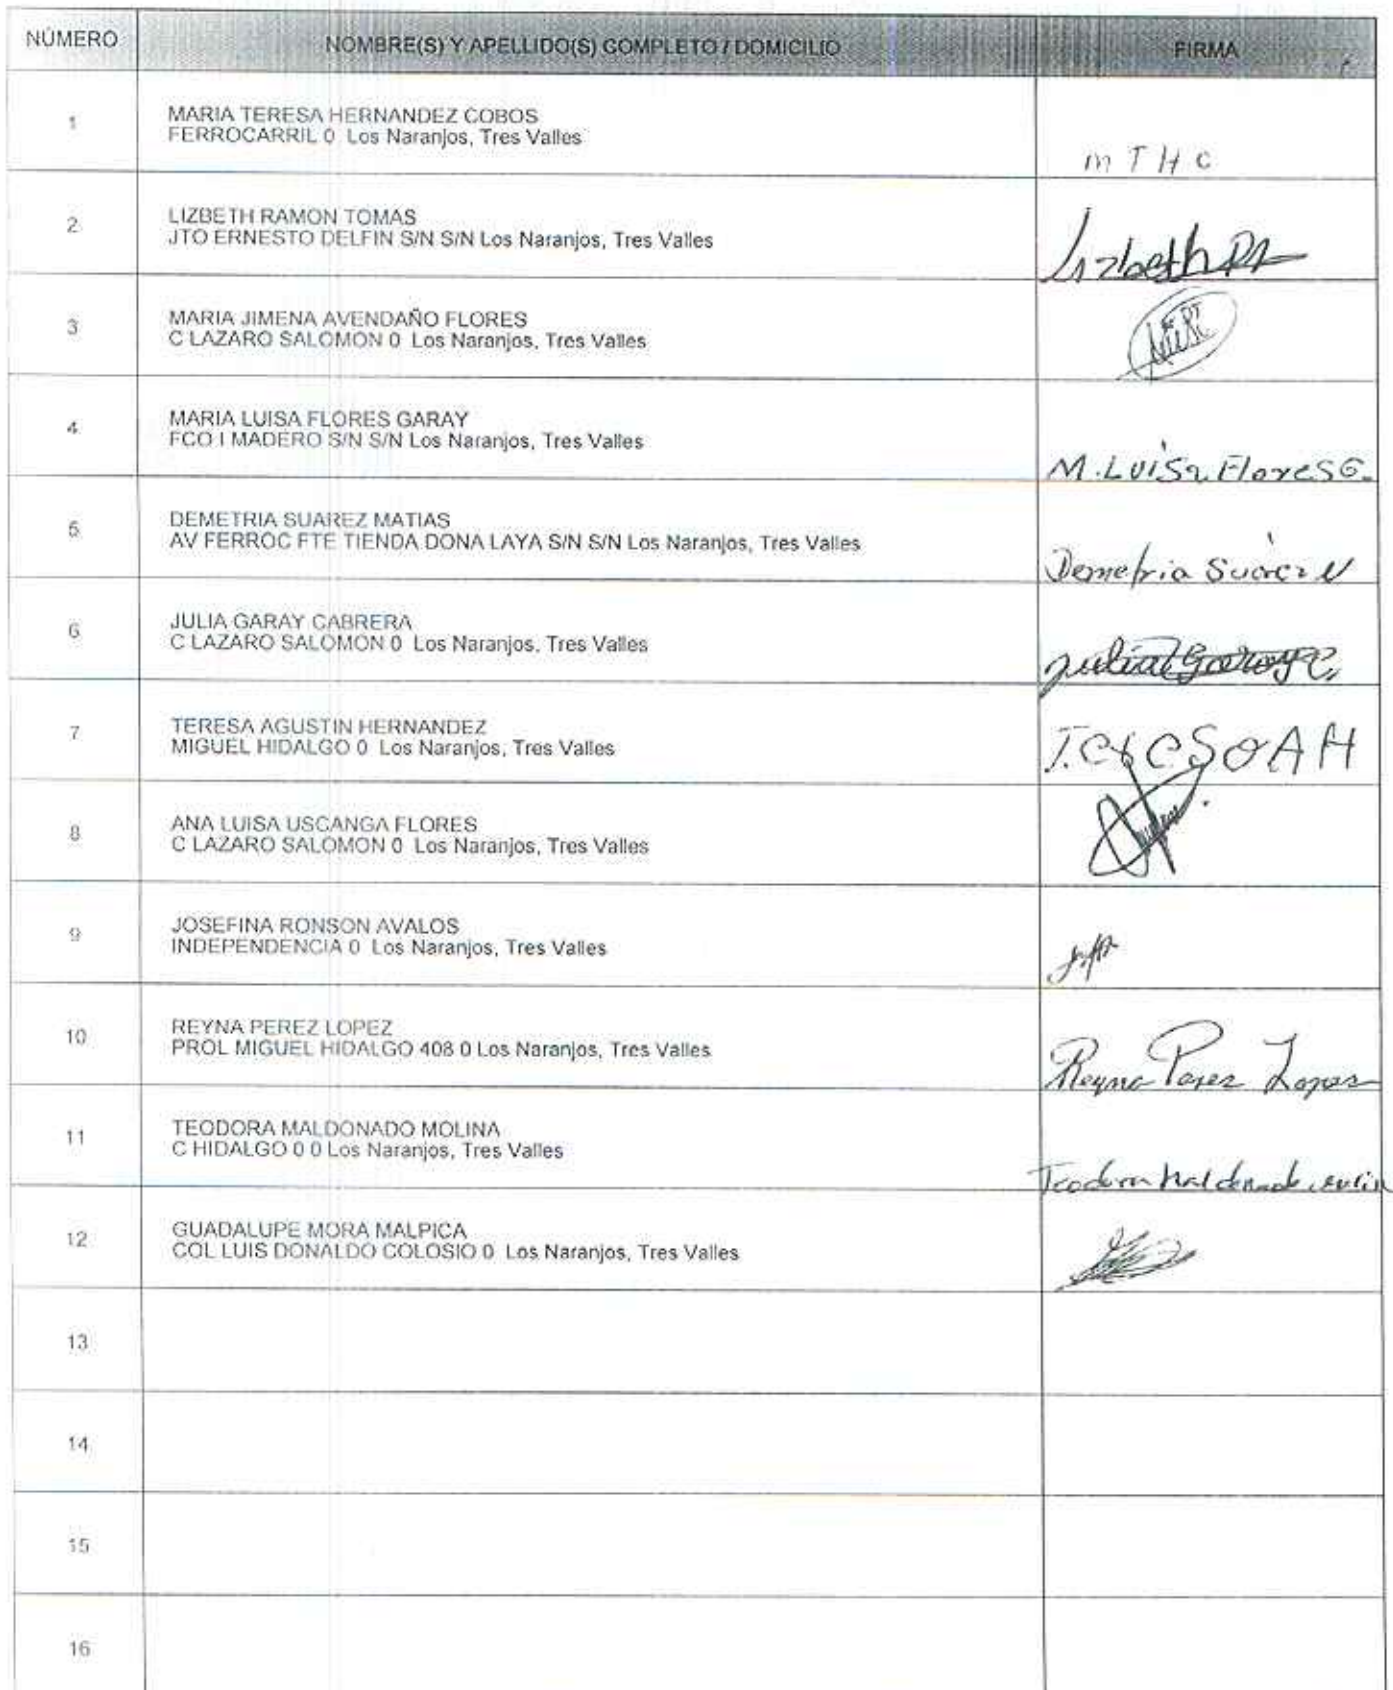 NÚMERO
NOMBRE(S) Y APELLIDO(S) COMPLETO / DOMICILIO
FIRMA
1
MARIA TERESA HERNANDEZ COBOS
FERROCARRIL 0 Los Naranjos, Tres Valles
m T H C
2
LIZBETH RAMON TOMAS
JTO ERNESTO DELFIN S/N S/N Los Naranjos, Tres Valles
Lizbeth
3
MARIA JIMENA AVENDAÑO FLORES
C LAZARO SALOMON 0 Los Naranjos, Tres Valles
4
MARIA LUISA FLORES GARAY
FCO I MADERO S/N S/N Los Naranjos, Tres Valles
M. Luisa Flores G.
5
DEMETRIA SUAREZ MATIAS
AV FERROC FTE TIENDA DONA LAYA S/N S/N Los Naranjos, Tres Valles
Demetria Suarez
6
JULIA GARAY CABRERA
C LAZARO SALOMON 0 Los Naranjos, Tres Valles
Julia Garay C.
7
TERESA AGUSTIN HERNANDEZ
MIGUEL HIDALGO 0 Los Naranjos, Tres Valles
A H
8
ANA LUISA USCANGA FLORES
C LAZARO SALOMON 0 Los Naranjos, Tres Valles
9
JOSEFINA RONSON AVALOS
INDEPENDENCIA 0 Los Naranjos, Tres Valles
10
REYNA PEREZ LOPEZ
PROL MIGUEL HIDALGO 408 0 Los Naranjos, Tres Valles
Reyna Perez Lopez
11
TEODORA MALDONADO MOLINA
C HIDALGO 0 0 Los Naranjos, Tres Valles
Teodora Maldonado
12
GUADALUPE MORA MALPICA
COL LUIS DONALDO COLOSIO 0 Los Naranjos, Tres Valles
13
14
15
16